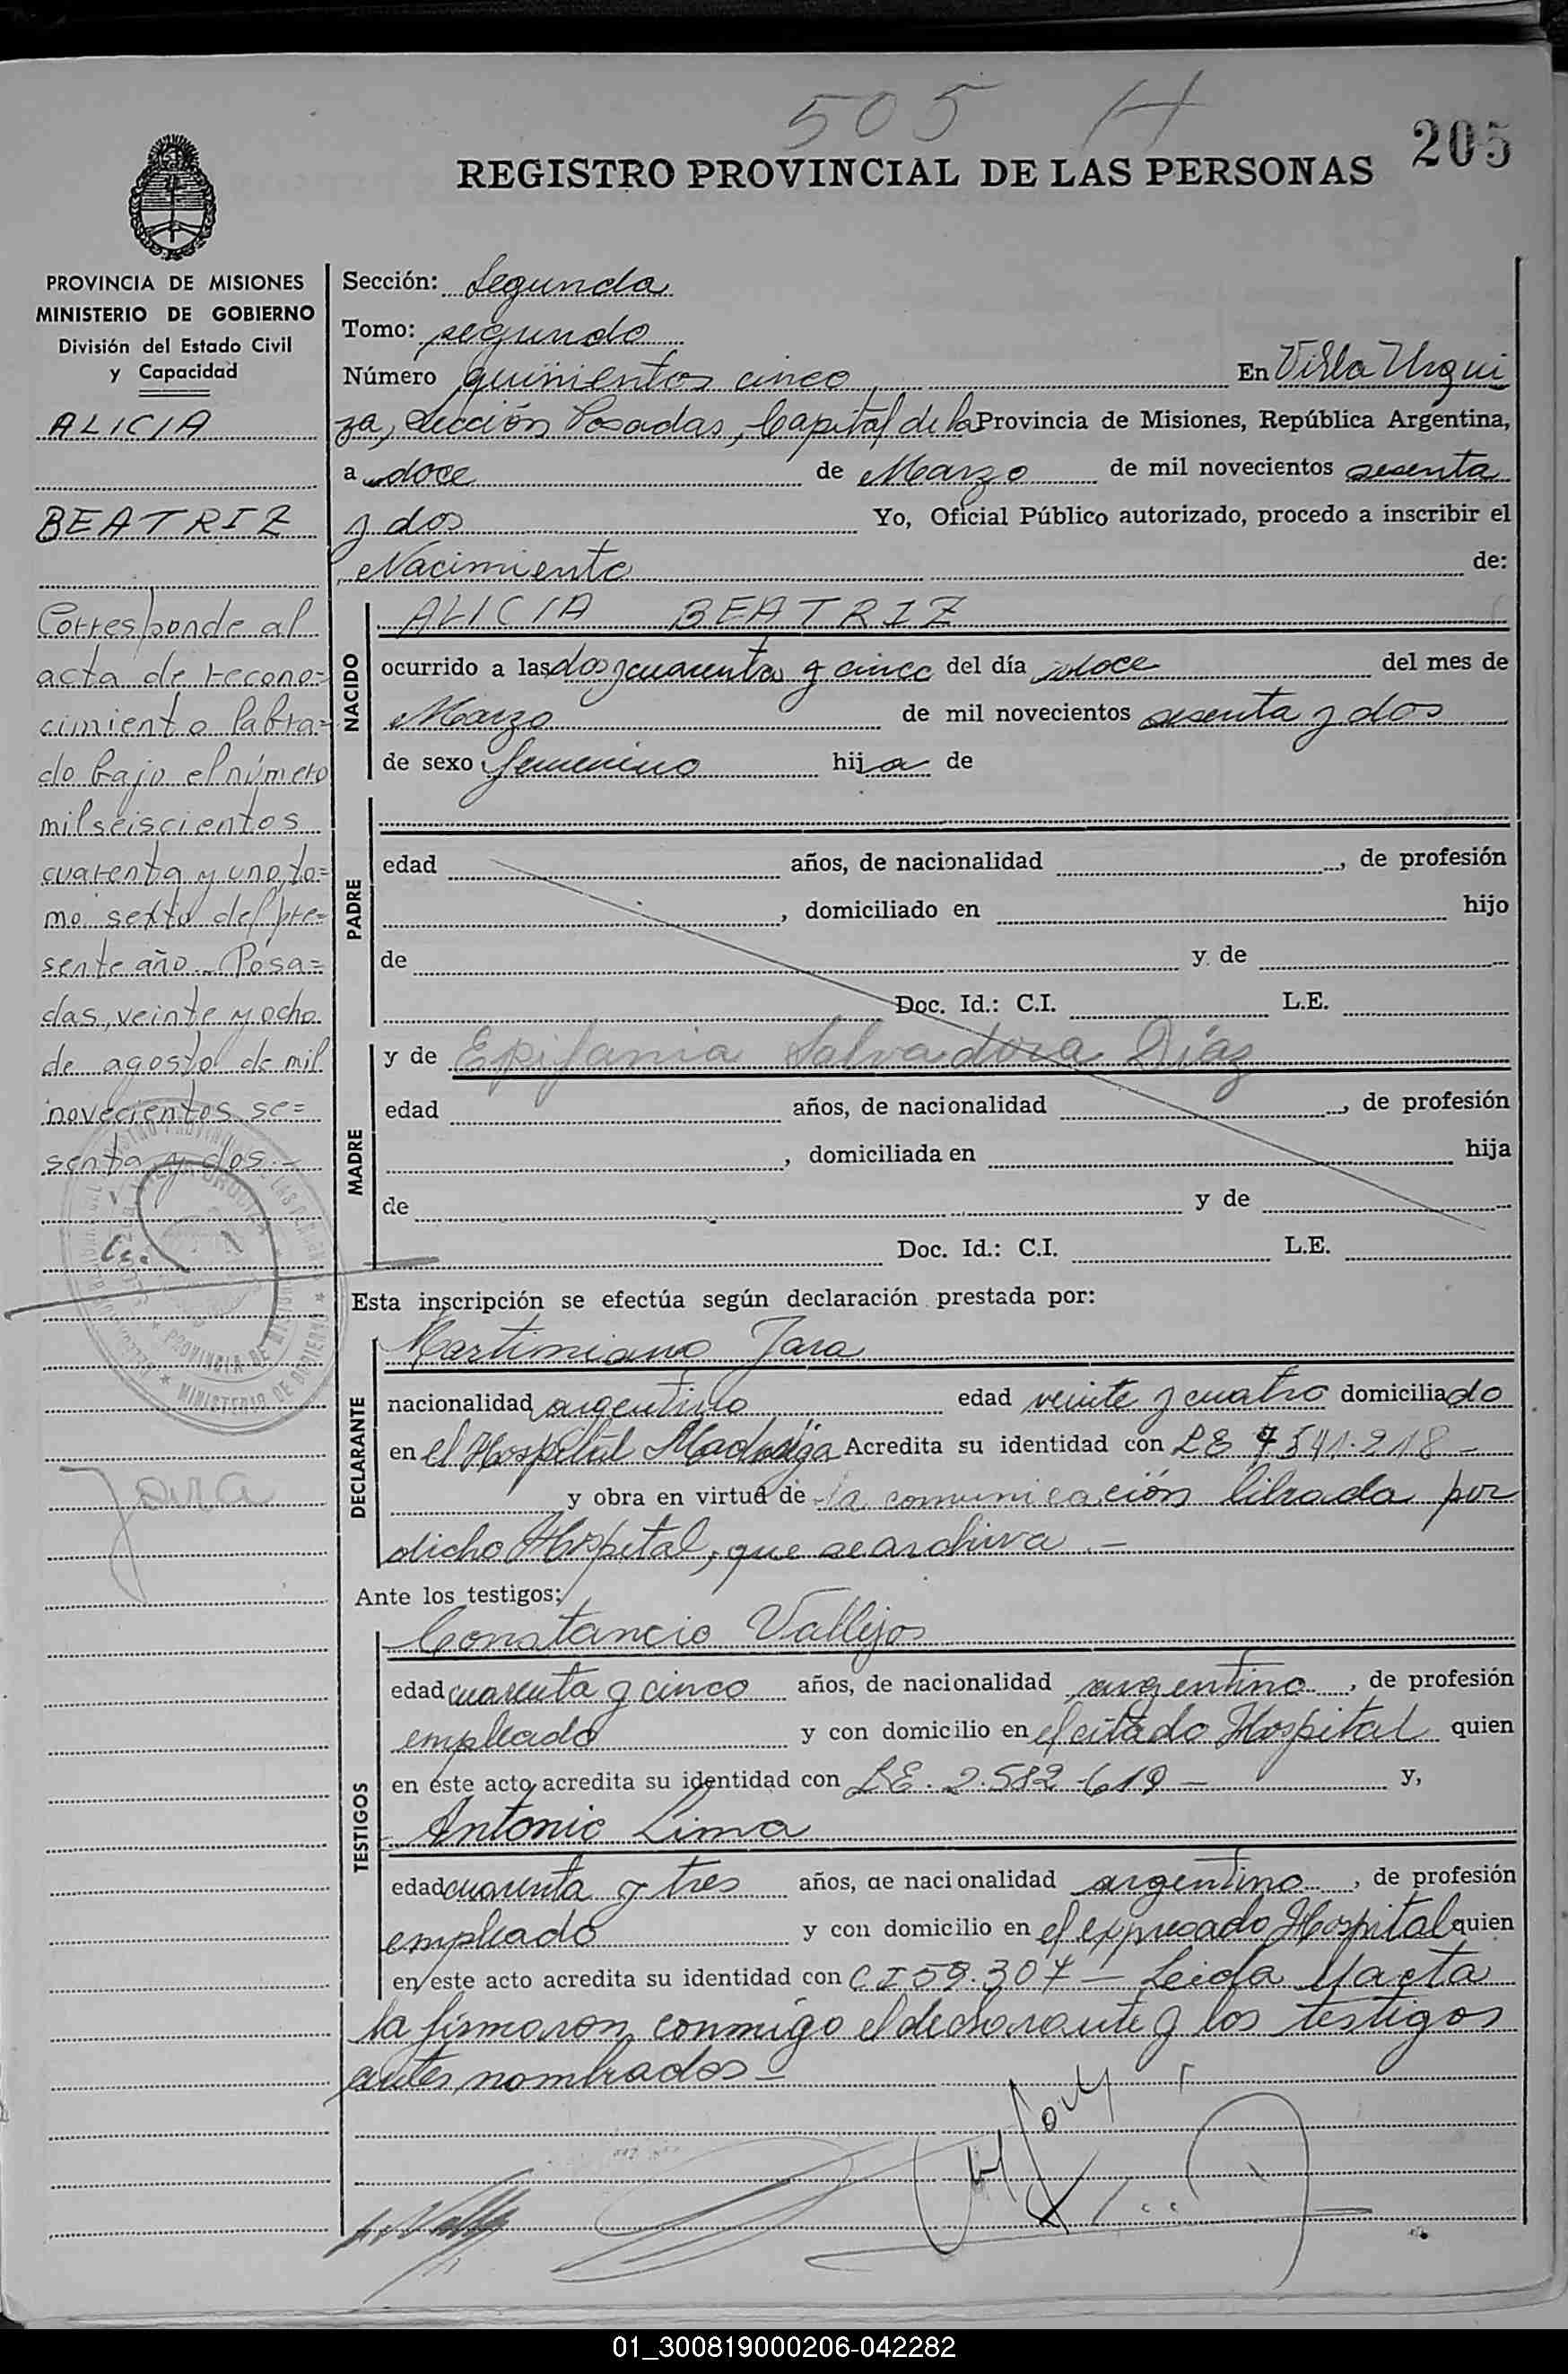 505 H
205
REGISTRO PROVINCIAL DE LAS PERSONAS
PROVINCIA DE MISIONES
MINISTERIO DE GOBIERNO
División del Estado Civil
y Capacidad
ALICIA
BEATRIZ
Corresponde al
acta de recono=
cimiento labra=
do bajo el número
mil seiscientos
cuarenta y uno, to=
mo sexto del pre=
sente año.. Posa=
das, veinte y ocho
de agosto de mil
novecientos se=
senta y dos.-
Jara
Sección: Segunda
Tomo: segundo
Número quinientos cinco En Villa Urqui
za, Sección Posadas, Capital de la Provincia de Misiones, República Argentina,
a doce de Marzo de mil novecientos sesenta
y dos Yo, Oficial Público autorizado, procedo a inscribir el
Nacimiento de:
NACIDO
ALICIA BEATRIZ
ocurrido a las dos y cuarenta y cinco del día doce del mes de
Marzo de mil novecientos sesenta y dos
de sexo femenino hija de
PADRE
edad años, de nacionalidad , de profesión
, domiciliado en hijo
de y de
Doc. Id.: C.I. L.E.
MADRE
y de Epifania Salvadora Díaz
edad años, de nacionalidad , de profesión
, domiciliada en hija
de y de
Doc. Id.: C.I. L.E.
Esta inscripción se efectúa según declaración prestada por:
DECLARANTE
Martimiano Jara
nacionalidad argentino edad veinte y cuatro domiciliado
en el Hospital Madariaga Acredita su identidad con LE 7541.218-
y obra en virtud de la comunicación librada por
dicho Hospital, que se archiva.-
Ante los testigos:
TESTIGOS
Constancio Vallejos
edad cuarenta y cinco años, de nacionalidad argentino, de profesión
empleado y con domicilio en el citado Hospital quien
en este acto acredita su identidad con LE. 2.582.619- y,
Antonio Lima
edad cuarenta y tres años, de nacionalidad argentino, de profesión
empleado y con domicilio en el expresado Hospital quien
en este acto acredita su identidad con C I 59.307- Leida l'acta
la firmaron conmigo el declarante y los testigos
antes nombrados-
01_300819000206-042282